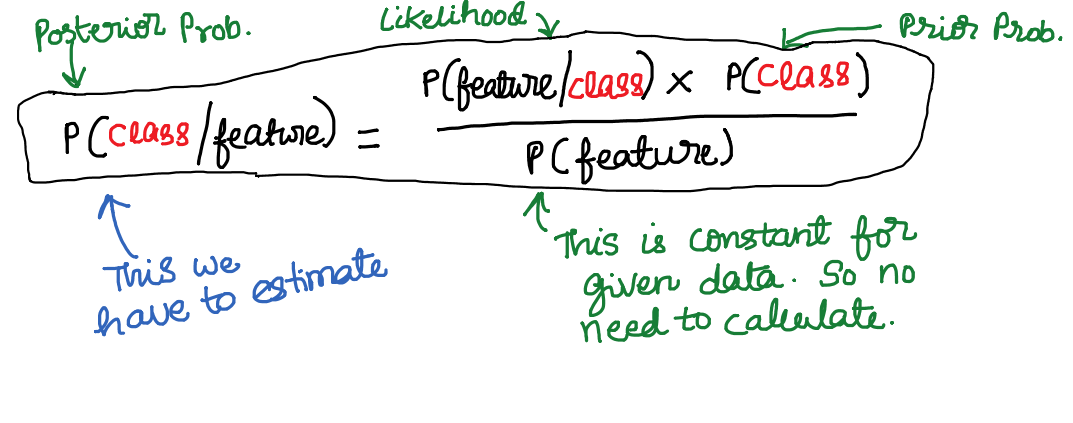 Posterior Prob.
Likelihood
Prior Prob.
P(feature/class) × P(Class)
P(Class/feature) =
P(feature)
This we
have to estimate
This is constant for
given data. So no
need to calculate.